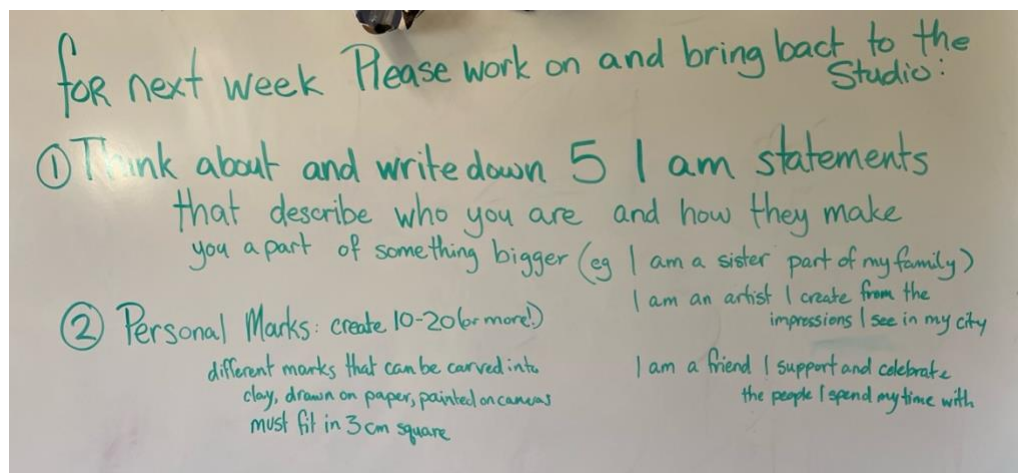 for next week Please work on and bring bact to the
Studio:
① Think about and write down 5 I am statements
that describe who you are and how they make
you a part of something bigger (eg I am a sister part of my family)
I am an artist I create from the
impressions I see in my city
I am a friend I support and celebrate
the people I spend my time with
② Personal Marks: create 10-20 (or more!)
different marks that can be carved into
clay, drawn on paper, painted on canvas
must fit in 3 cm square